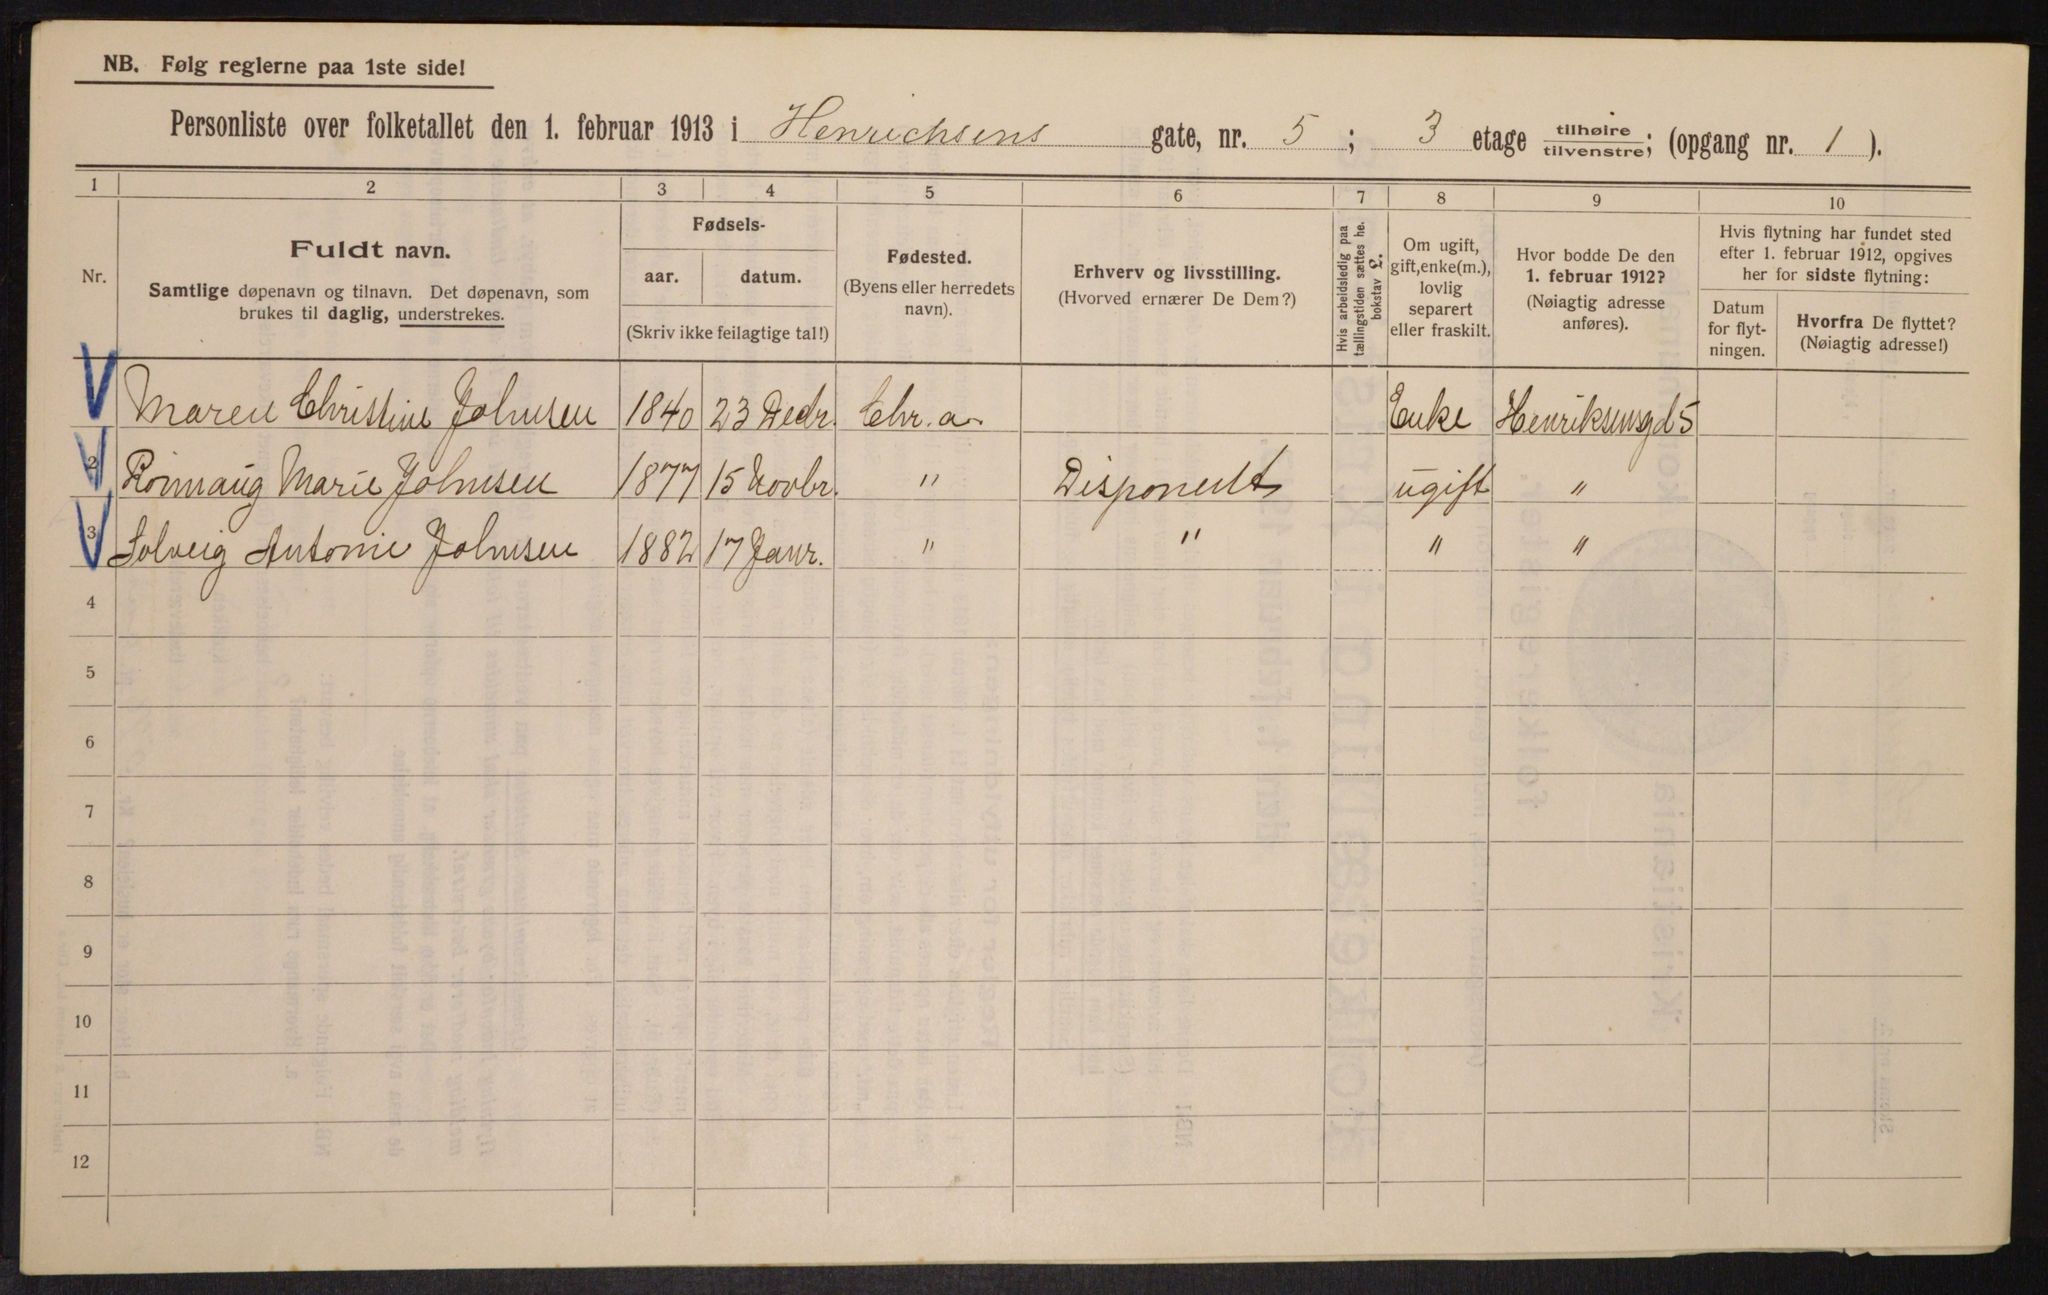 NB. Følg reglerne paa 1ste side!
Personliste over folketallet den 1. februar 1913 i Henrichsens gate, nr. 5 ; 3 etage tilhøire/tilvenstre; (opgang nr. 1 ).
1 2 3 4 5 6 7 8 9 10
Nr.
Fuldt navn.
Samtlige døpenavn og tilnavn. Det døpenavn, som
brukes til daglig, understrekes.
Fødsels-
aar. datum.
(Skriv ikke feilagtige tal!)
Fødested.
(Byens eller herredets
navn).
Erhverv og livsstilling.
(Hvorved ernærer De Dem?)
Hvis arbeidsledig paa
tællingstiden sættes he.
bokstav L.
Om ugift,
gift, enke(m.),
lovlig
separert
eller fraskilt.
Hvor bodde De den
1. februar 1912?
(Nøiagtig adresse
anføres).
Hvis flytning har fundet sted
efter 1. februar 1912, opgives
her for sidste flytning:
Datum
for flyt-
ningen.
Hvorfra De flyttet?
(Nøiagtig adresse!)
Maren Christine Johnsen 1840 23 Decbr. Chr.a Enke Henriksensgd 5
2 Ronnaug Marie Johnsen 1877 15 Novbr. " Disponent ugift "
3 Solveig Antonie Johnsen 1882 17 Janr. " " " "
4
5
6
7
8
9
10
11
12